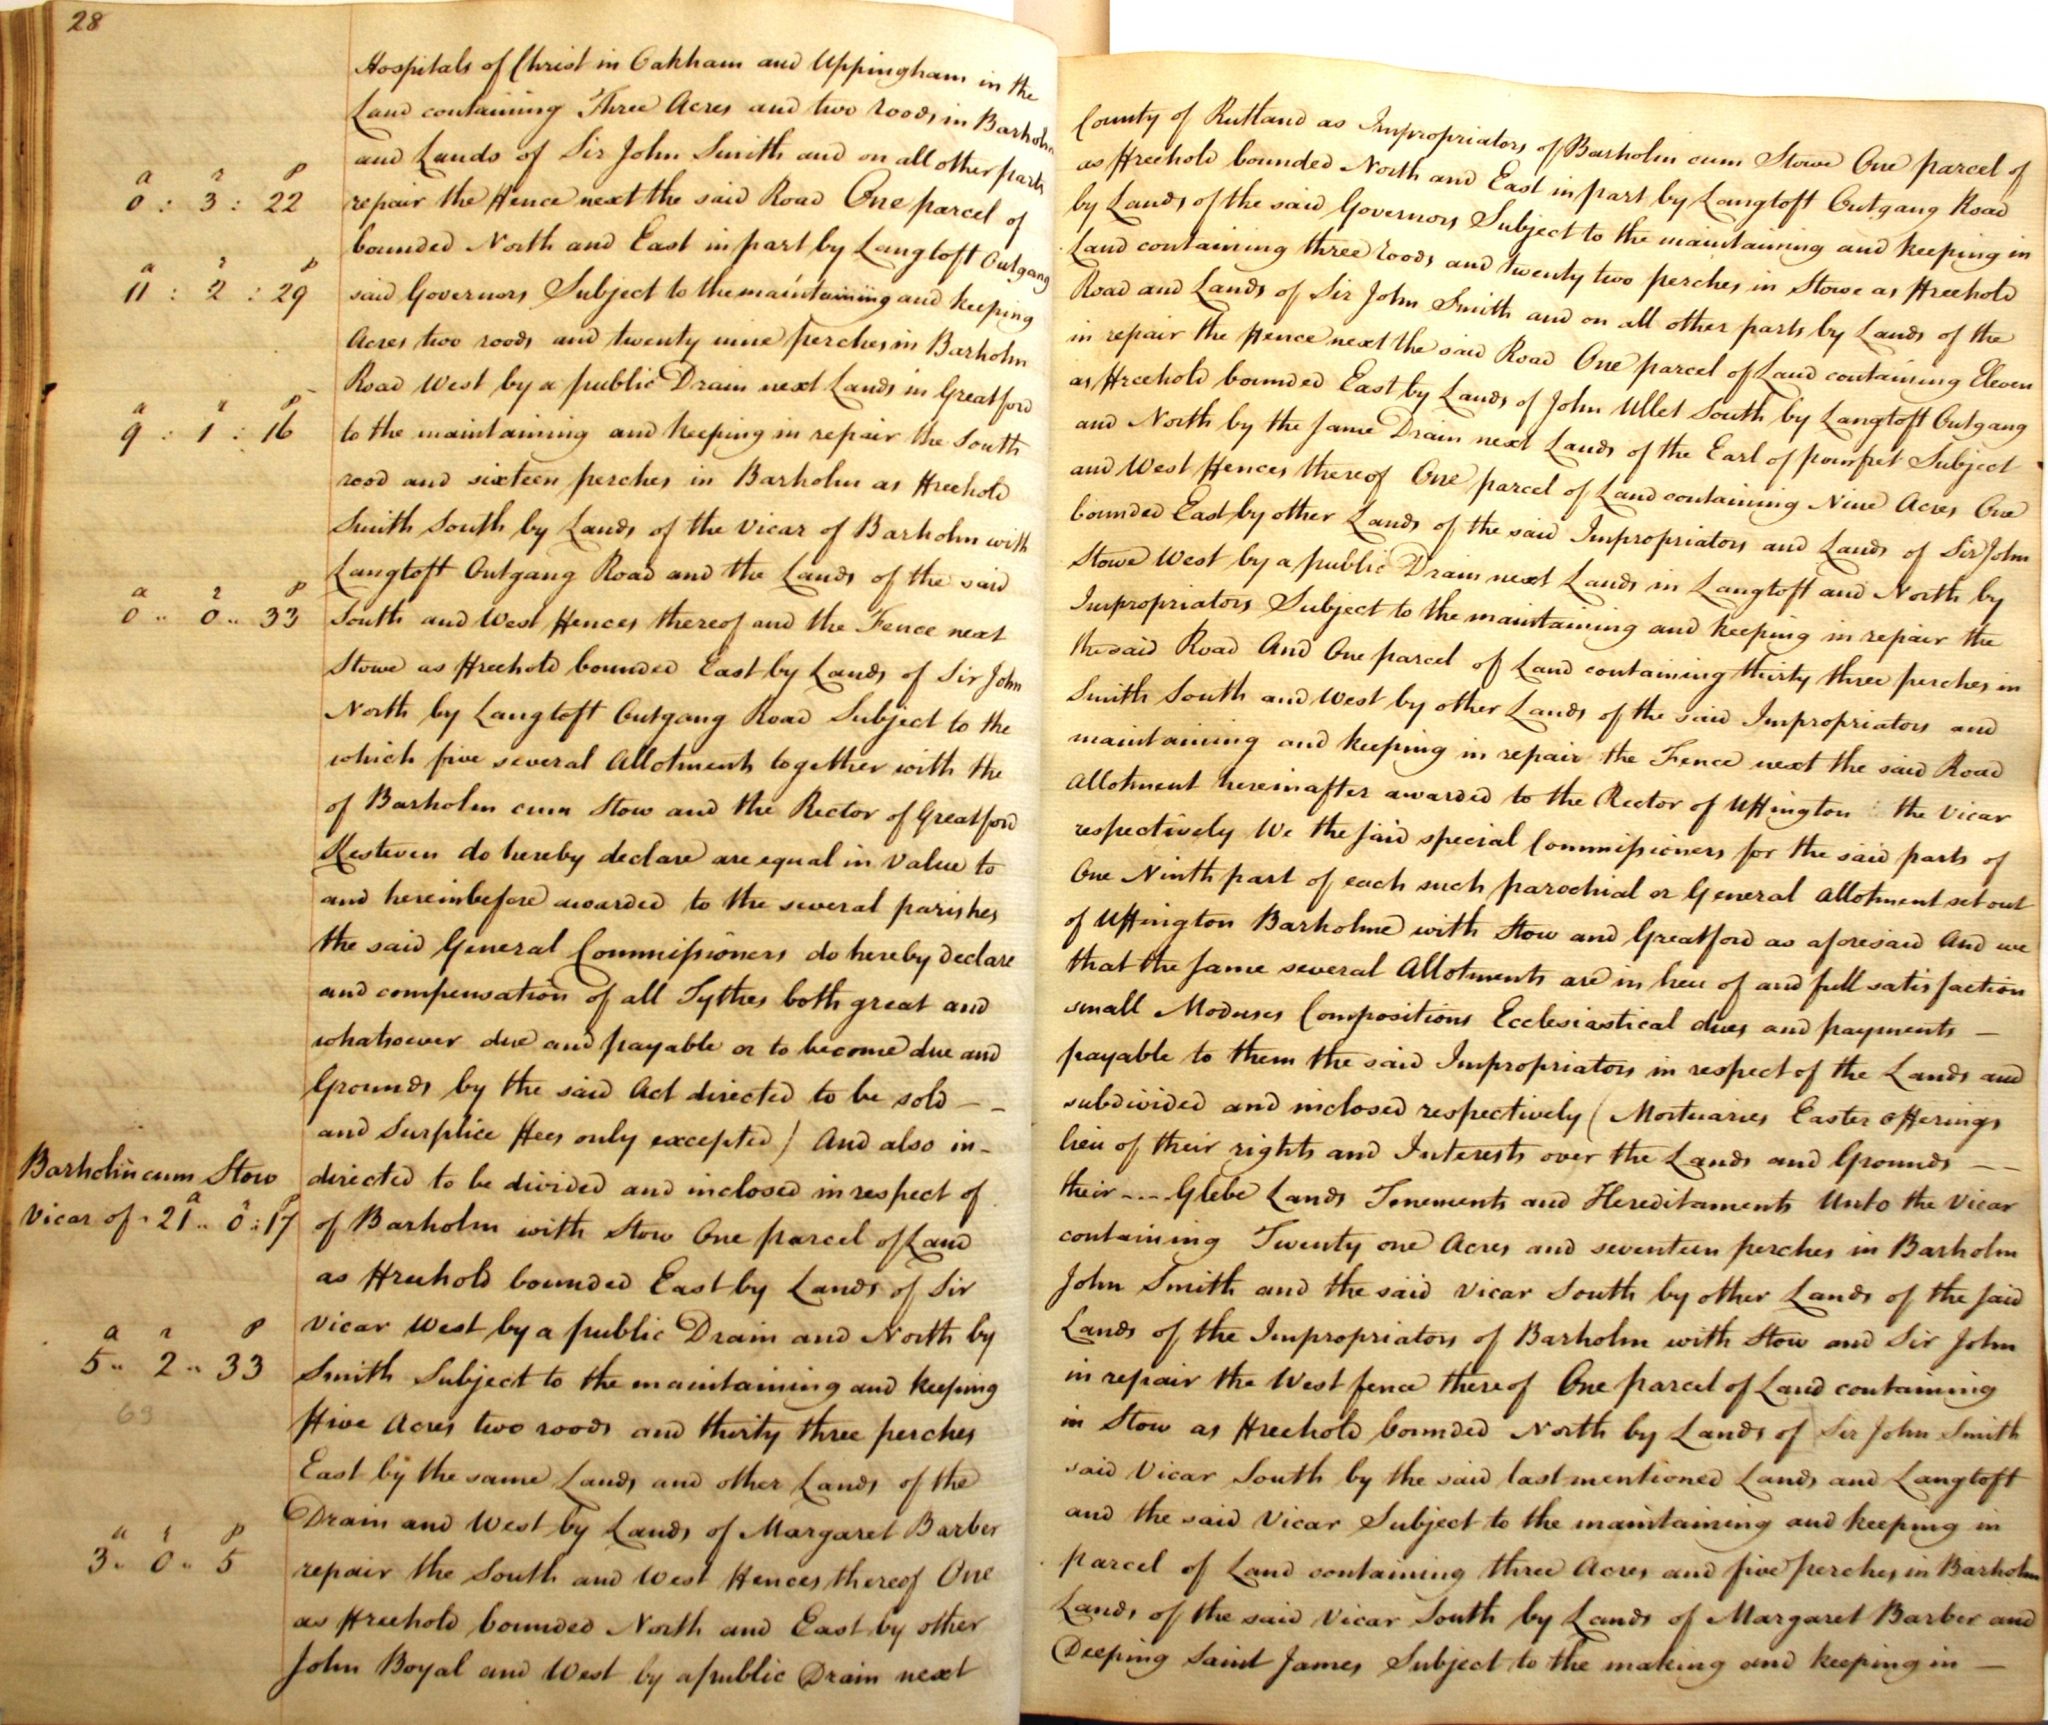 28
Hospitals of Christ in Oakham and Uppingham in the County of Rutland as Impropriators of Barholm cum Stowe One parcel of
Land containing Three Acres and two roods in Barholm as Freehold bounded North and East in part by Langtoft Outgang Road
and Lands of Sir John Smith and on all other parts by Lands of the said Governors Subject to the maintaining and keeping in
a r p
0 : 3 : 22 repair the Fence next the said Road One parcel of Land containing three roods and twenty two perches in Stowe as Freehold
bounded North and East in part by Langtoft Outgang Road and Lands of Sir John Smith and on all other parts by Lands of the
a r p
11 : 2 : 29 said Governors Subject to the maintaining and keeping in repair the Fence next the said Road One parcel of Land containing Eleven
Acres two roods and twenty nine perches in Barholm as Freehold bounded East by Lands of John Ullet South by Langtoft Outgang
Road West by a public Drain next Lands in Greatford and North by the same Drain next Lands of the Earl of pomfret Subject
a r p
9 : 1 : 16 to the maintaining and keeping in repair the South and West Fences thereof One parcel of Land containing Nine Acres One
rood and sixteen perches in Barholm as Freehold bounded East by other Lands of the said Impropriators and Lands of Sir John
Smith South by Lands of the Vicar of Barholm with Stowe West by a public Drain next Lands in Langtoft and North by
Langtoft Outgang Road and the Lands of the said Impropriators Subject to the maintaining and keeping in repair the
a r p
0 .. 0 .. 33 South and West Fences thereof and the Fence next the said Road And One parcel of Land containing thirty three perches in
Stowe as Freehold bounded East by Lands of Sir John Smith South and West by other Lands of the said Impropriators and
North by Langtoft Outgang Road Subject to the maintaining and keeping in repair the Fence next the said Road
which five several Allotments together with the Allotment hereinafter awarded to the Rector of Uffington the Vicar
of Barholm cum Stow and the Rector of Greatford respectively We the said special Commissioners for the said parts of
Kesteven do hereby declare are equal in Value to One Ninth part of each such parochial or General Allotment set out
and hereinbefore awarded to the several parishes of Uffington Barholme with Stow and Greatford as aforesaid And we
the said General Commissioners do hereby declare that the same several Allotments are in lieu of and full satisfaction
and compensation of all Tythes both great and small Moduses Compositions Ecclesiastical dues and payments —
whatsoever due and payable or to become due and payable to them the said Impropriators in respect of the Lands and
Grounds by the said Act directed to be sold – – subdivided and inclosed respectively ( Mortuaries Easter offerings
and Surplice Fees only excepted ) And also in – lieu of their rights and Interests over the Lands and Grounds – –
Barholm cum Stow directed to be divided and inclosed in respect of their – – – Glebe Lands Tenements and Hereditaments Unto the Vicar
a r p
Vicar of . 21 .. 0 : 17 of Barholm with Stow One parcel of Land containing Twenty one Acres and seventeen perches in Barholm
as Freehold bounded East by Lands of Sir John Smith and the said Vicar South by other Lands of the said
Vicar West by a public Drain and North by Lands of the Impropriators of Barholm with Stow and Sir John
a r p
5 .. 2 .. 33 Smith Subject to the maintaining and keeping in repair the West fence thereof One parcel of Land containing
69 Five Acres two roods and thirty three perches in Stow as Freehold bounded North by Lands of Sir John Smith
East by the same Lands and other Lands of the said Vicar South by the said last mentioned Lands and Langtoft
Drain and West by Lands of Margaret Barber and the said Vicar Subject to the maintaining and keeping in
a r p
3 .. 0 .. 5 repair the South and West Fences thereof One parcel of Land containing three Acres and five perches in Barholm
as Freehold bounded North and East by other Lands of the said Vicar South by Lands of Margaret Barber and
John Boyal and West by a public Drain next Deeping Saint James Subject to the making and keeping in —